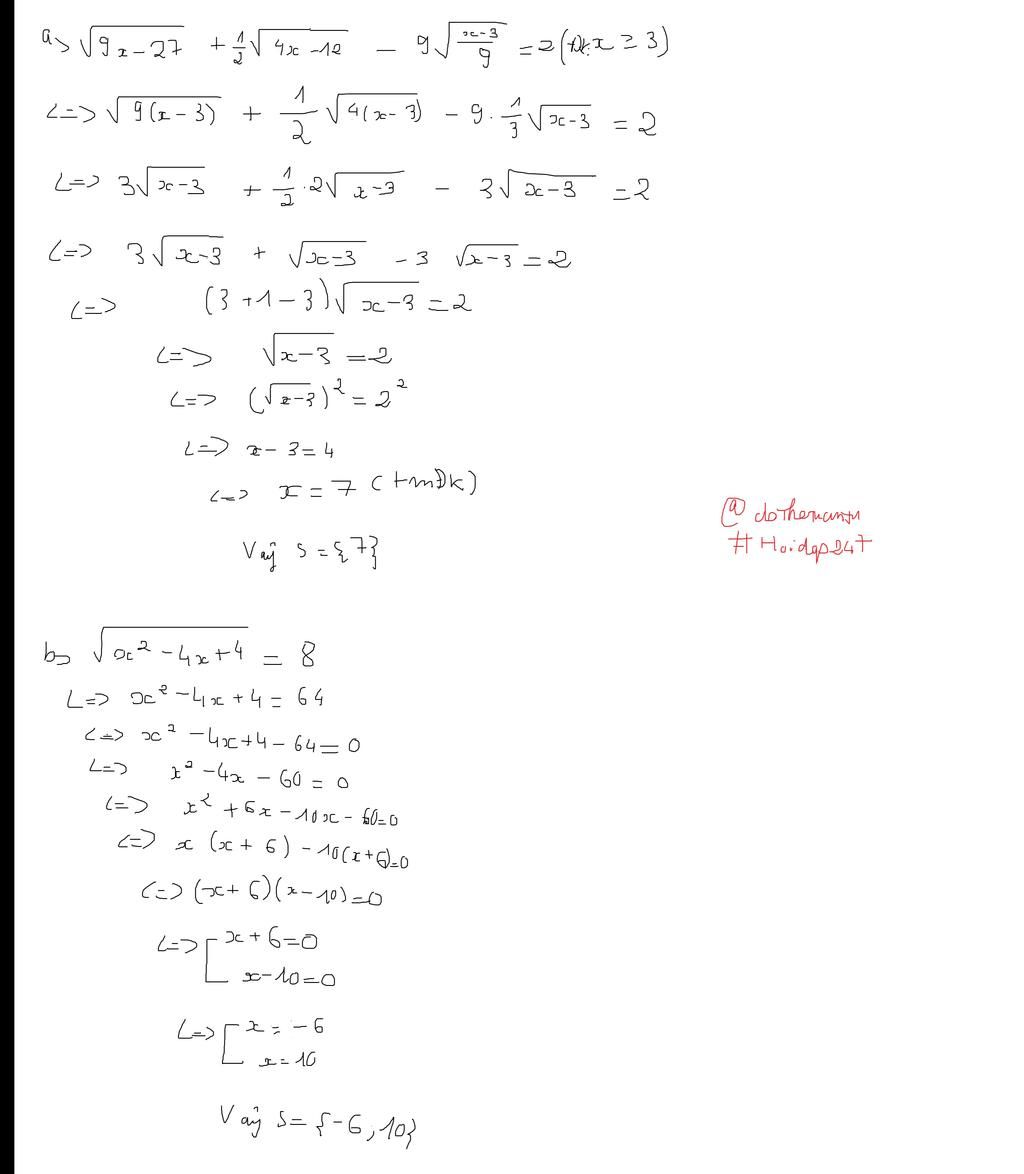 a> √(9x-27) + 1/2 √(4x-12) - 9√((x-3)/9) = 2 (Đk: x ≥ 3)
<=> √(9(x-3)) + 1/2 √(4(x-3)) - 9. 1/3 √(x-3) = 2
<=> 3√(x-3) + 1/2 .2√(x-3) - 3√(x-3) = 2
<=> 3√(x-3) + √(x-3) - 3 √(x-3) = 2
<=> (3+1-3)√(x-3) = 2
<=> √(x-3) = 2
<=> (√(x-3))² = 2²
<=> x-3=4
<=> x=7 (tmĐk)
@
#Hoidap247
Vậy S={7}
b> √(x²-4x+4) = 8
<=> x²-4x+4 = 64
<=> x²-4x+4-64=0
<=> x²-4x-60=0
<=> x²+6x-10x-60=0
<=> x(x+6)-10(x+6)=0
<=> (x+6)(x-10)=0
<=> [ x+6=0
x-10=0
<=> [ x=-6
x=10
Vậy S={-6,10}